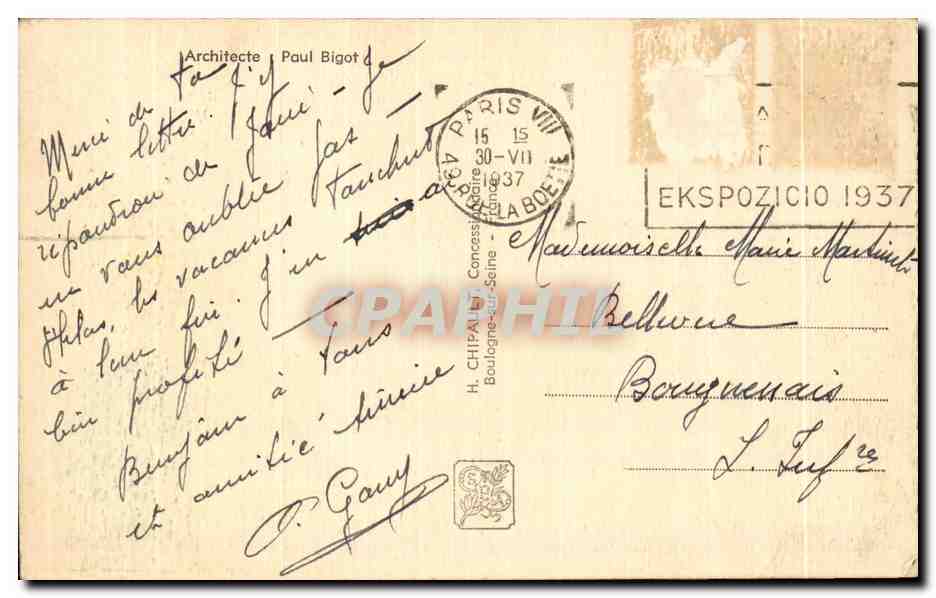 Architecte Paul Bigot
Merci de ta
bonne lettre. J'y
répondrai de Je
ne vous oublie pas –
Hélas, les vacances touchent
à leur fin. J'en ai
bien profité –
Bonjour à tous
et amitié
PARIS VIII
15 15
30-VII
1937
49 R. DE LA BOETIE
EKSPOZICIO 1937
H. CHIPAULT, Concessionnaire
Boulogne-sur-Seine - France
CPAPHIL
Mademoiselle Marie
Bellevue
Bouguenais
L. Infre